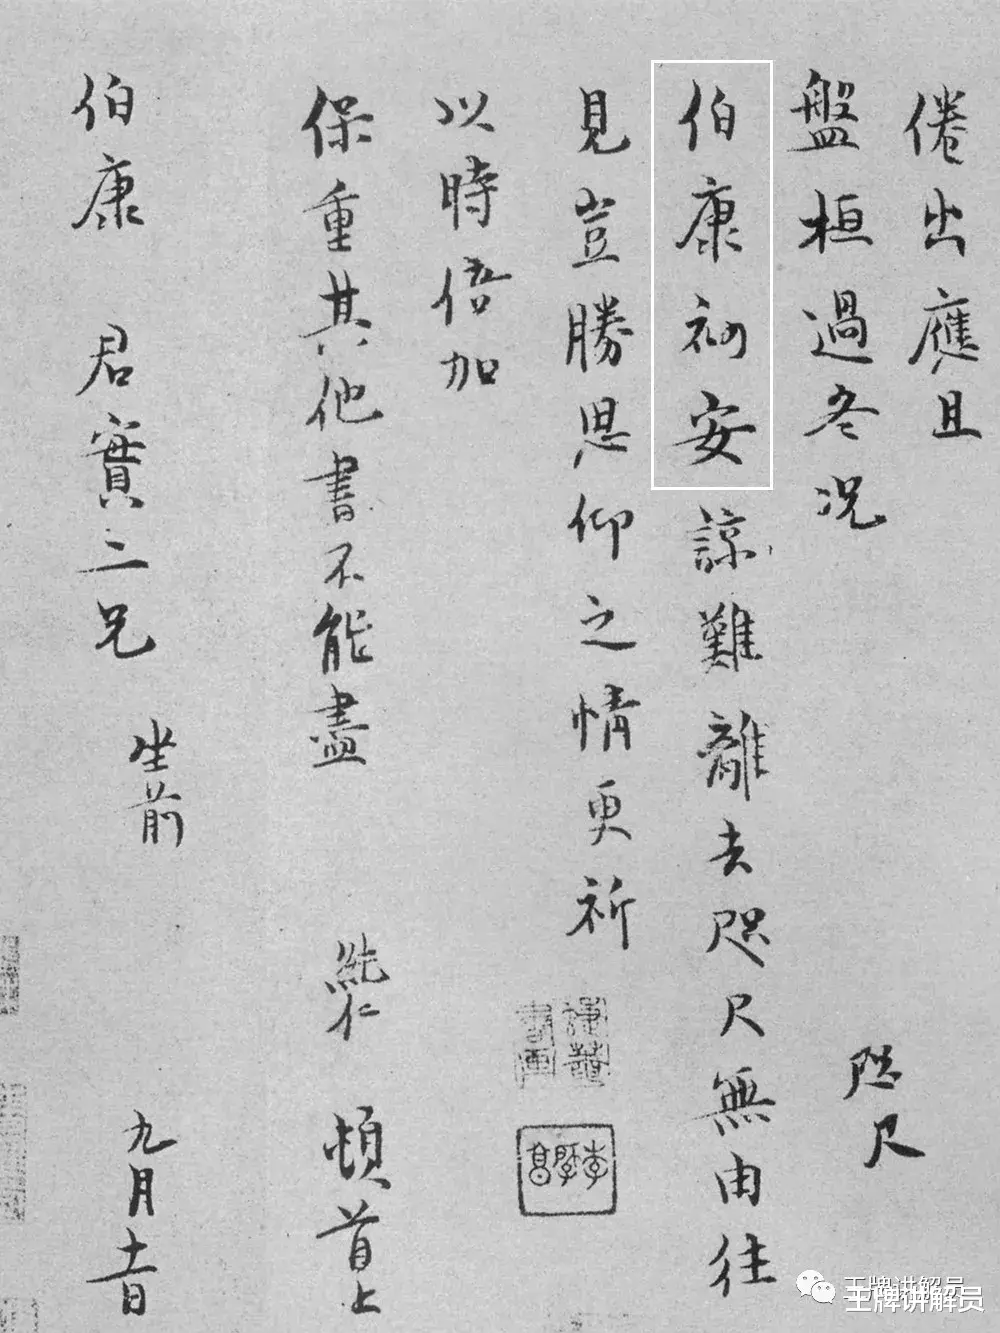 倦出應且
盤桓過冬況
咫尺
伯康初安諒難離去咫尺無由往
見豈勝思仰之情更祈
以時倍加
保重其他書不能盡 純仁 頓首上
伯康 君實二兄 坐前 九月十一日
王牌讲解员
王牌讲解员